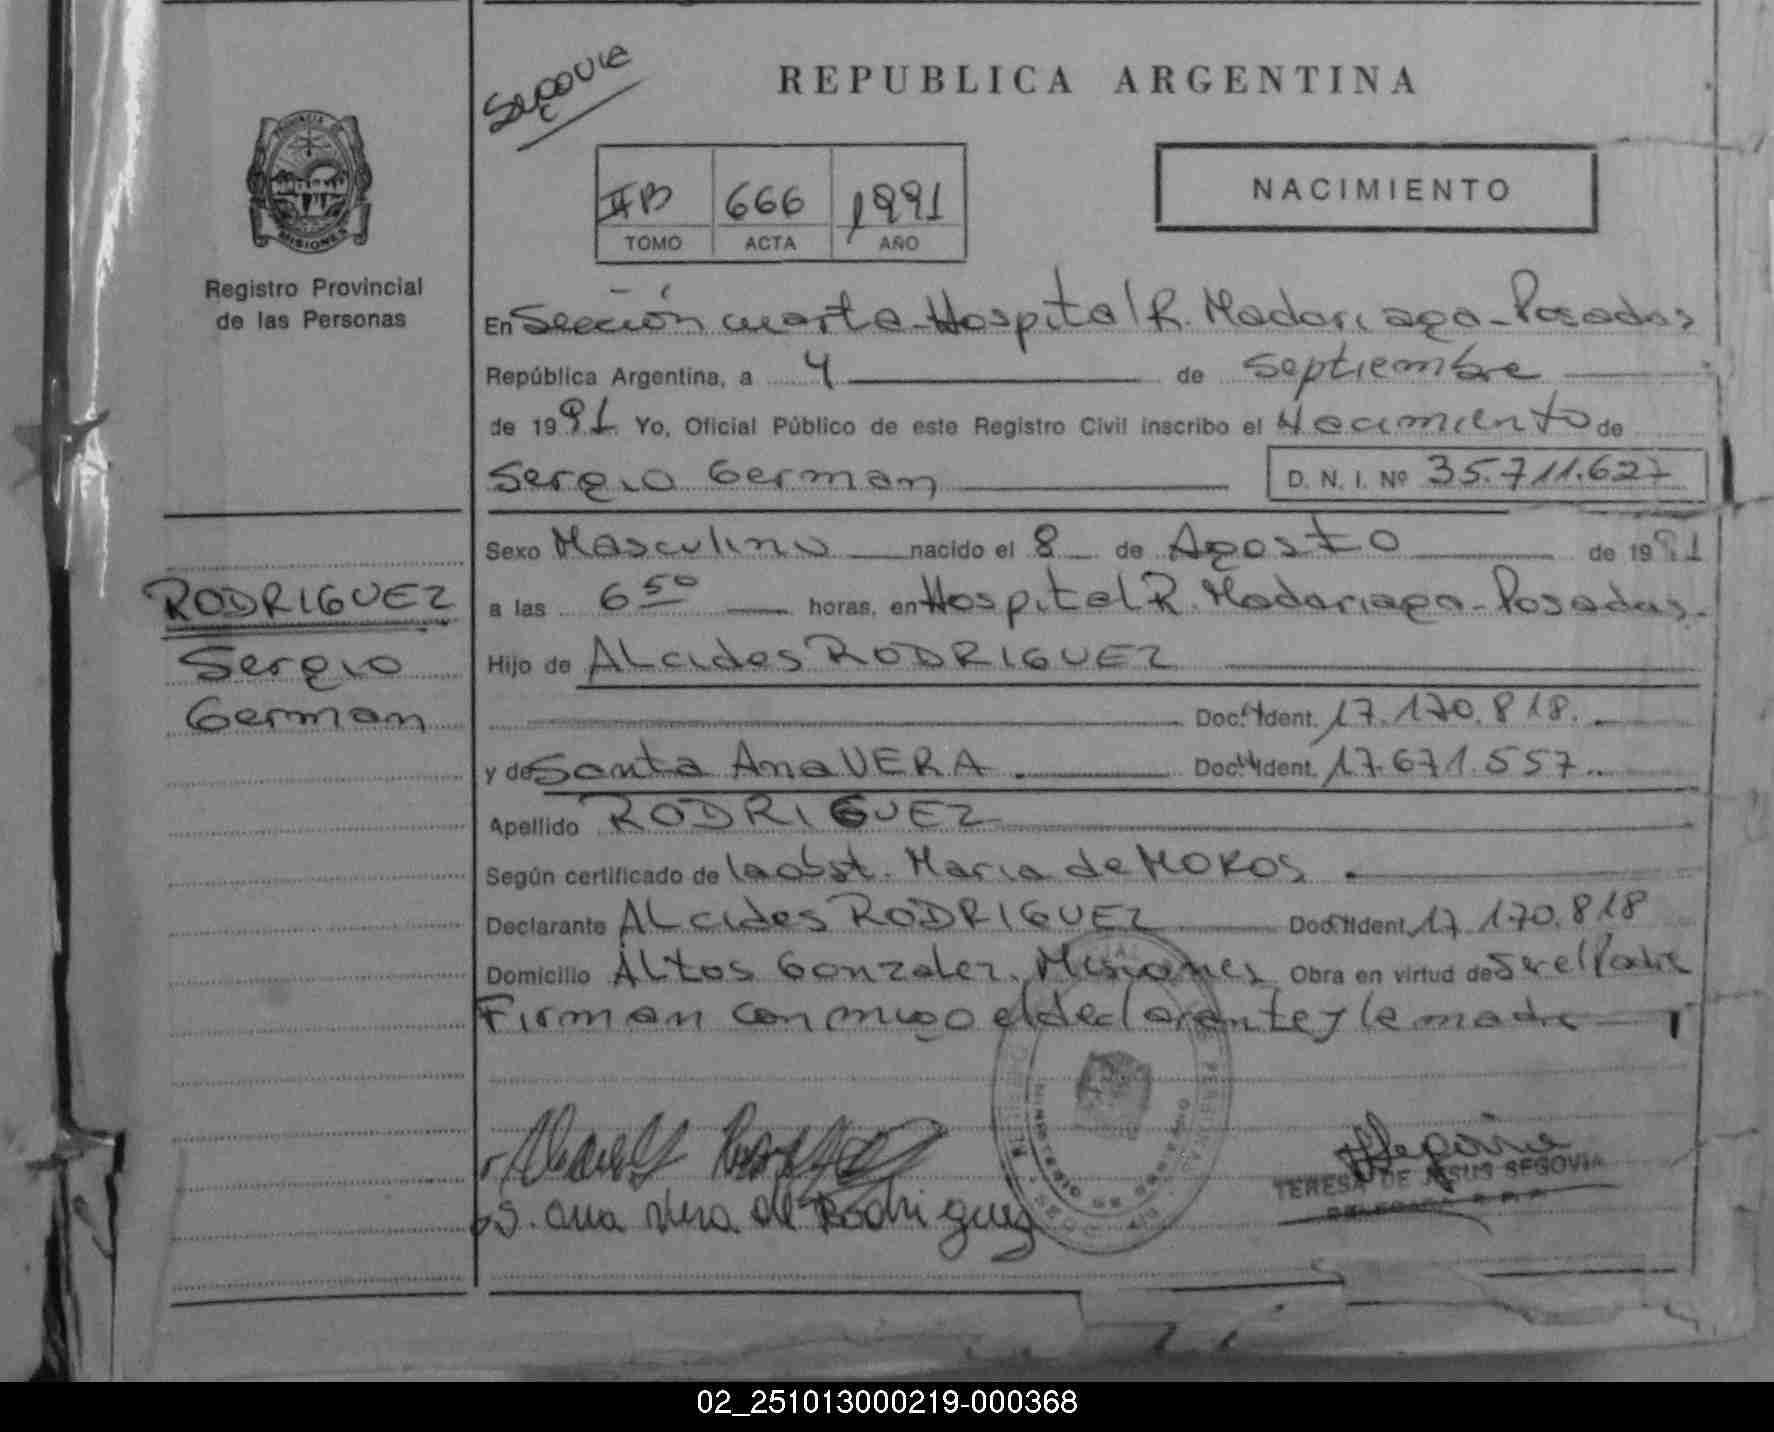 Segovia
REPUBLICA ARGENTINA
NACIMIENTO
IIB 666 1991
TOMO ACTA AÑO
PROVINCIA DE
MISIONES
Registro Provincial
de las Personas
En Sección cuarta-Hospital R. Madariaga-Posadas
República Argentina, a 4 de Septiembre
de 1991 Yo, Oficial Público de este Registro Civil inscribo el Nacimiento de
Sergio German D. N. I. Nº 35.711.627
Sexo Masculino nacido el 8 de Agosto de 1991
a las 6 50 horas, en Hospital R. Madariaga-Posadas.
Hijo de ALcides RODRIGUEZ
Doc. Ident. 17.170.818.
y de Santa Ana VERA. Doc. Ident. 17.671.557.
Apellido RODRIGUEZ
Según certificado de la obst. Maria de MOROS.
Declarante ALcides RODRIGUEZ Doc. Ident. 17.170.818
Domicilio ALtos Gonzalez. Misiones Obra en virtud de Ser el Padre
Firman conmigo el declarante y la madre
RODRIGUEZ
Sergio
German
S. Ana Vera de Rodriguez
TERESA DE JESUS SEGOVIA
02_251013000219-000368